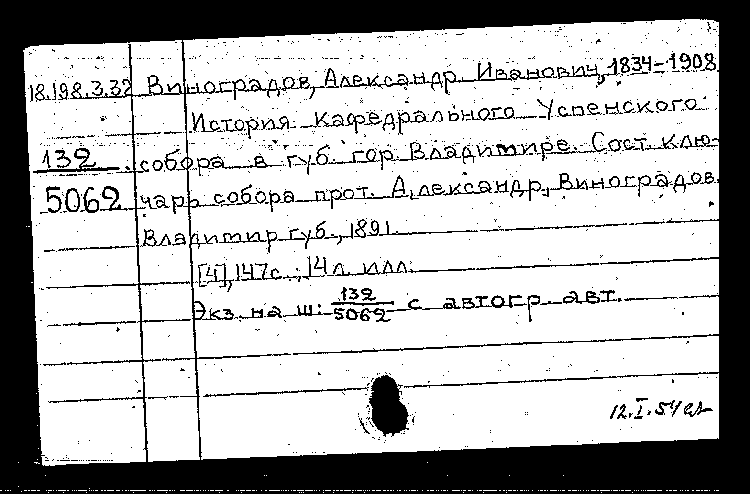 18.198.3.32 Виноградов, Александр Иванович, 1834-1908
История Кафедрального Успенского
132 собора в губ. гор. Владимире. Сост. клю-
5062 чарь собора прот. А,лександр, Виноградов.
Владимир губ., 1891.
[4], 147 с.; 14 л. илл.
Экз. на ш: 132/5062 с автогр. авт.
12.I.54